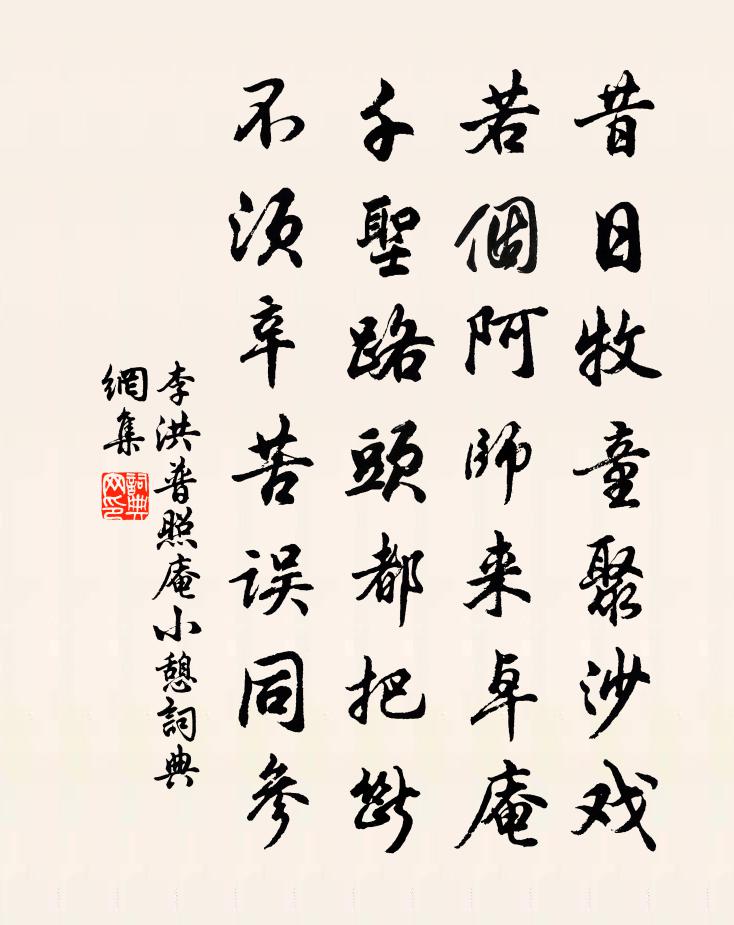 昔日牧童聚沙戏
若個阿師来卓庵
千聖路頭都把断
不须辛苦误同參
李洪普照庵小憩詞典
網集
詞典网印